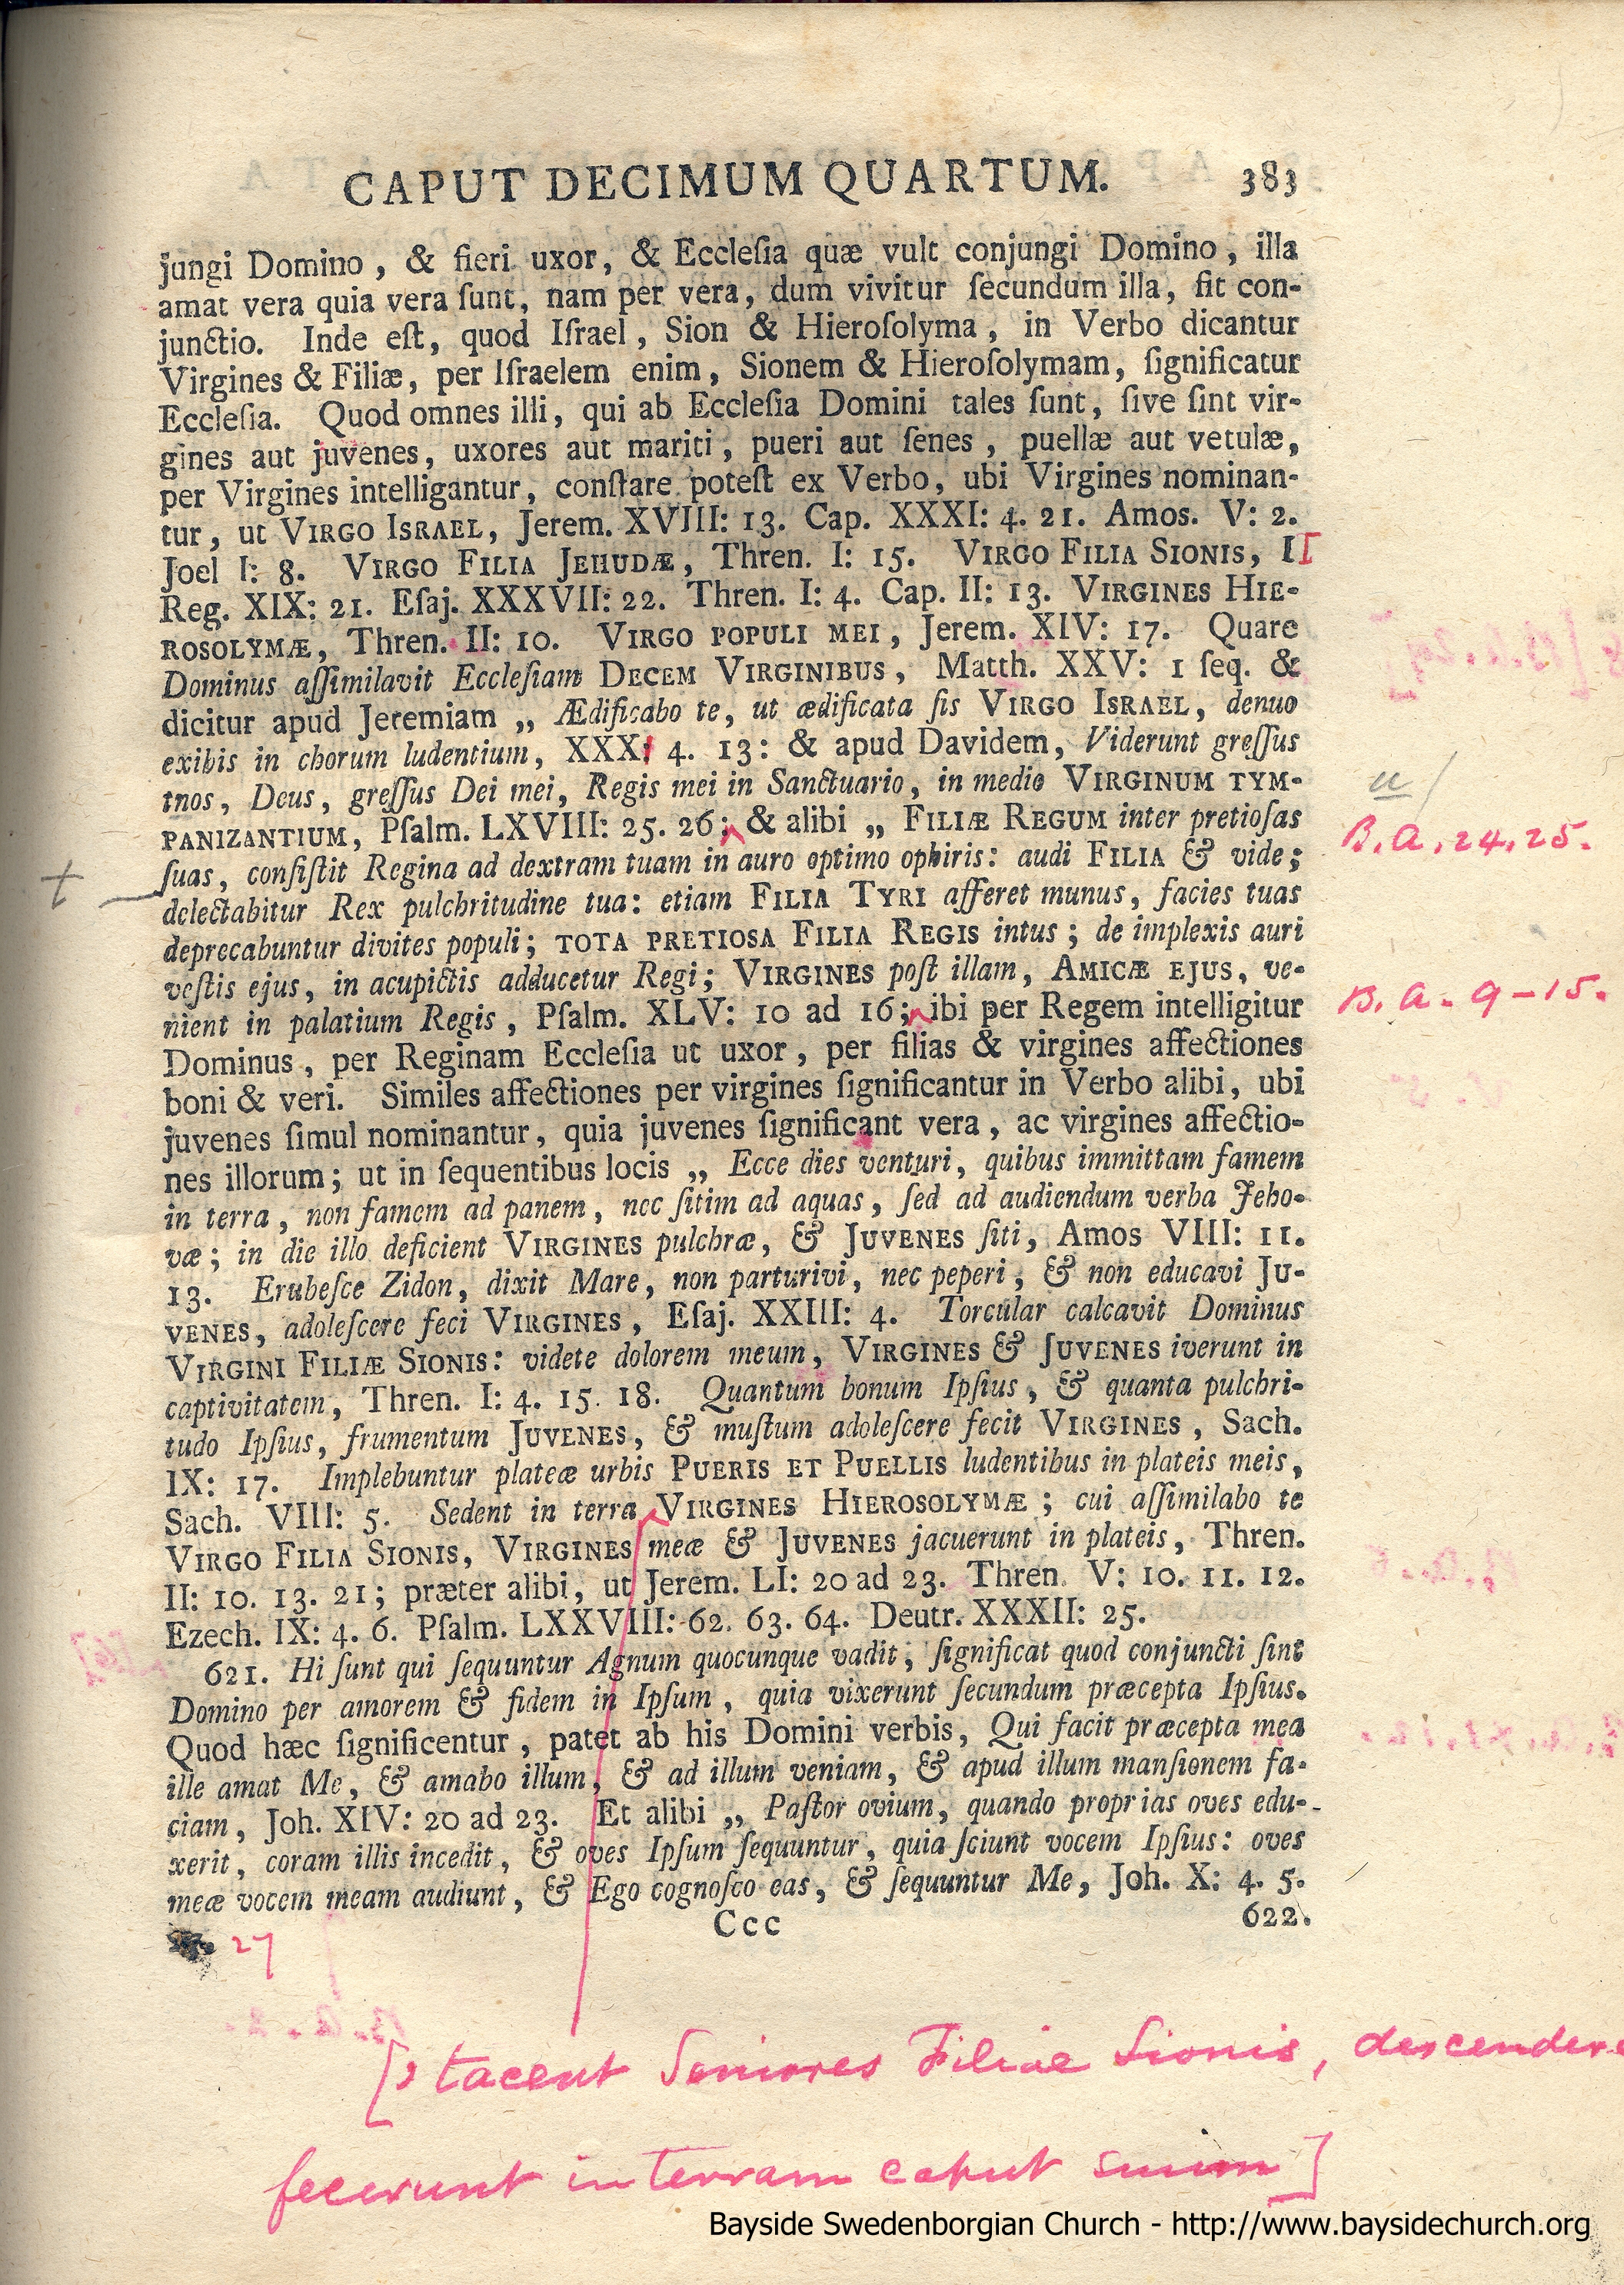 CAPUT DECIMUM QUARTUM. 383
jungi Domino, & fieri uxor, & Eccleſia quæ vult conjungi Domino, illa
amat vera quia vera ſunt, nam per vera, dum vivitur ſecundum illa, fit con-
junctio. Inde eſt, quod Iſrael, Sion & Hieroſolyma, in Verbo dicantur
Virgines & Filiæ, per Iſraelem enim, Sionem & Hieroſolymam, ſignificatur
Eccleſia. Quod omnes illi, qui ab Eccleſia Domini tales ſunt, ſive ſint vir-
gines aut juvenes, uxores aut mariti, pueri aut ſenes, puellæ aut vetulæ,
per Virgines intelligantur, conſtare poteſt ex Verbo, ubi Virgines nominan-
tur, ut VIRGO ISRAEL, Jerem. XVIII: 13. Cap. XXXI: 4. 21. Amos. V: 2.
Joel I: 8. VIRGO FILIA JEHUDÆ, Thren. I: 15. VIRGO FILIA SIONIS, II
Reg. XIX: 21. Eſaj. XXXVII: 22. Thren. I: 4. Cap. II: 13. VIRGINES HIE-
ROSOLYMÆ, Thren. II: 10. VIRGO POPULI MEI, Jerem. XIV: 17. Quare
Dominus aſſimilavit Eccleſiam DECEM VIRGINIBUS, Matth. XXV: 1 ſeq. &
dicitur apud Jeremiam „ Ædificabo te, ut ædificata ſis VIRGO ISRAEL, denuo
exibis in chorum ludentium, XXX: 4. 13: & apud Davidem, Viderunt greſſus
tnos, Deus, greſſus Dei mei, Regis mei in Sanctuario, in medio VIRGINUM TYM-
u
PANIZANTIUM, Pſalm. LXVIII: 25. 26; & alibi „ FILIÆ REGUM inter pretioſas
B.A. 24.25.
ſuas, conſiſtit Regina ad dextram tuam in auro optimo ophiris: audi FILIA & vide;
delectabitur Rex pulchritudine tua: etiam FILIA TYRI afferet munus, facies tuas
deprecabuntur divites populi; TOTA PRETIOSA FILIA REGIS intus; de implexis auri
veſtis ejus, in acupictis adducetur Regi; VIRGINES poſt illam, AMICÆ EJUS, ve-
nient in palatium Regis, Pſalm. XLV: 10 ad 16; ibi per Regem intelligitur
B.A. 9-15.
Dominus, per Reginam Eccleſia ut uxor, per filias & virgines affectiones
boni & veri. Similes affectiones per virgines ſignificantur in Verbo alibi, ubi
juvenes ſimul nominantur, quia juvenes ſignificant vera, ac virgines affectio-
nes illorum; ut in ſequentibus locis „ Ecce dies venturi, quibus immittam famem
in terra, non famem ad panem, nec ſitim ad aquas, ſed ad audiendum verba Jeho-
væ; in die illo deficient VIRGINES pulchræ, & JUVENES ſiti, Amos VIII: 11.
13. Erubeſce Zidon, dixit Mare, non parturivi, nec peperi, & non educavi JU-
VENES, adoleſcere feci VIRGINES, Eſaj. XXIII: 4. Torcular calcavit Dominus
VIRGINI FILIÆ SIONIS: videte dolorem meum, VIRGINES & JUVENES iverunt in
captivitatem, Thren. I: 4. 15. 18. Quantum bonum Ipſius, & quanta pulchri-
tudo Ipſius, frumentum JUVENES, & muſtum adoleſcere fecit VIRGINES, Sach.
IX: 17. Implebuntur plateæ urbis PUERIS ET PUELLIS ludentibus in plateis meis,
Sach. VIII: 5. Sedent in terra VIRGINES HIEROSOLYMÆ; cui aſſimilabo te
VIRGO FILIA SIONIS, VIRGINES meæ & JUVENES jacuerunt in plateis, Thren.
II: 10. 13. 21; præter alibi, ut Jerem. LI: 20 ad 23. Thren. V: 10. 11. 12.
Ezech. IX: 4. 6. Pſalm. LXXVIII: 62. 63. 64. Deutr. XXXII: 25.
621. Hi ſunt qui ſequuntur Agnum quocunque vadit, ſignificat quod conjuncti ſint
Domino per amorem & fidem in Ipſum, quia vixerunt ſecundum præcepta Ipſius.
Quod hæc ſignificentur, patet ab his Domini verbis, Qui facit præcepta mea
ille amat Me, & amabo illum, & ad illum veniam, & apud illum manſionem fa-
ciam, Joh. XIV: 20 ad 23. Et alibi „ Paſtor ovium, quando proprias oves edu-
xerit, coram illis incedit, & oves Ipſum ſequuntur, quia ſciunt vocem Ipſius: oves
meæ vocem meam audiunt, & Ego cognoſco eas, & ſequuntur Me, Joh. X: 4. 5.
Ccc 622.
27
[, tacent Seniores Filiae Sionis, descendere
fecerunt in terram caput suum]
Bayside Swedenborgian Church - http://www.baysidechurch.org